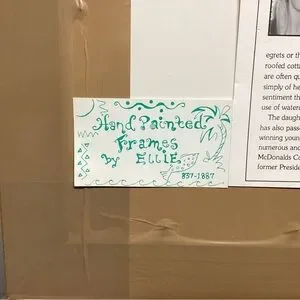 Hand Painted
Frames
by ELLIE
837-1887
egrets or th
roofed cotta
are often qu
simply of he
sentiment th
use of water
The daugh
has also pass
winning youn
numerous and
McDonalds Co
former Preside